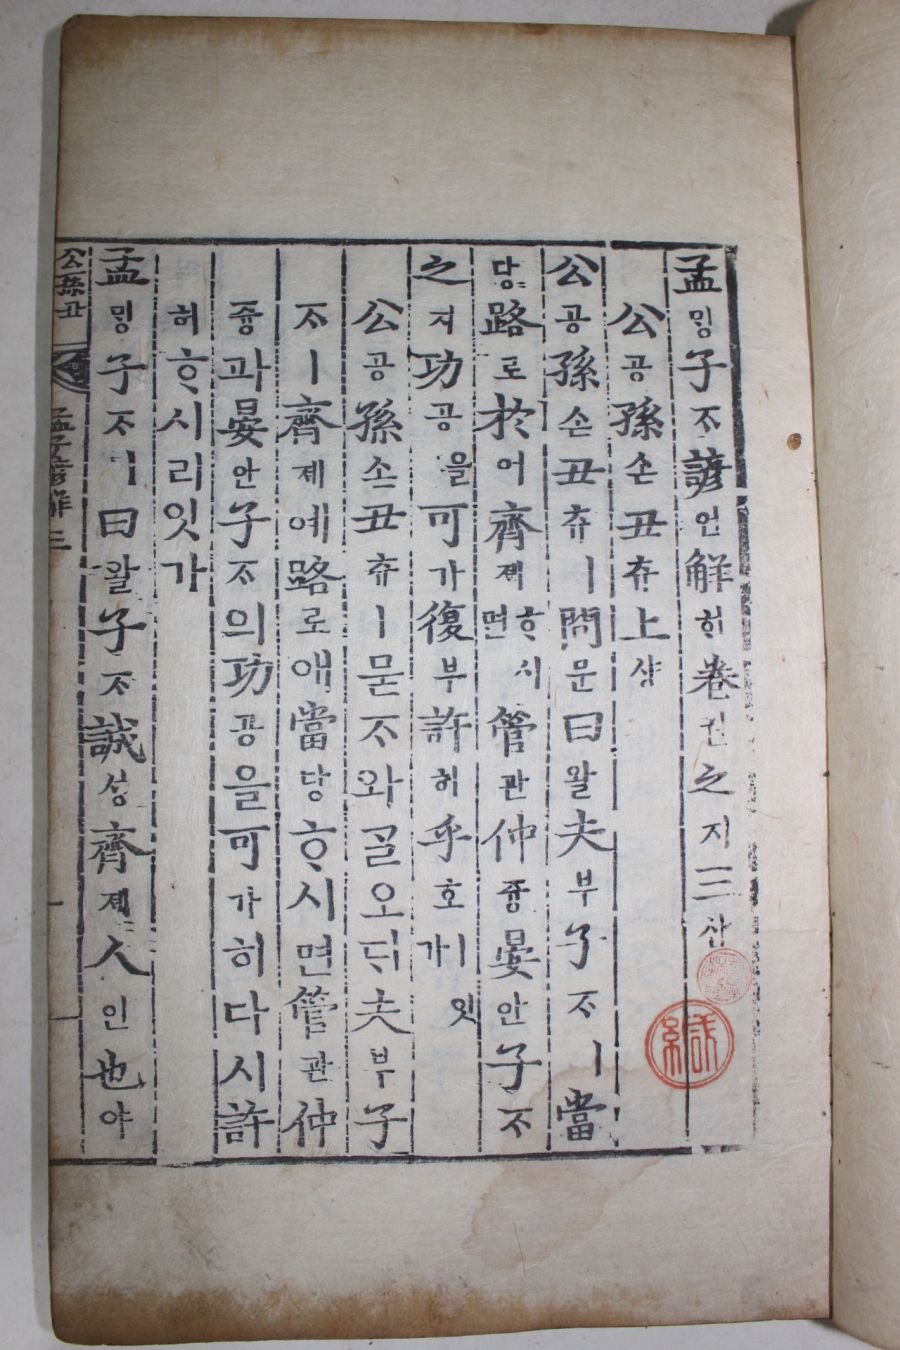 孟밍子ᄌᆞ諺언解ᄒᆡ卷권之지三삼
公공孫손丑츄上샹
公공孫손丑츄ㅣ問문曰왈夫부子ᄌᆞㅣ當
당路로於어齊졔ᄒᆞ시면管관仲즁晏안子ᄌᆞ
之지功공을可가復부許허乎호ㅣ잇가
公공孫손丑츄ㅣ묻ᄌᆞ와ᄀᆞᆯ오ᄃᆡ夫부子
ᄌᆞㅣ齊졔예路로애當당ᄒᆞ시면管관仲
즁과晏안子ᄌᆞ의功공을可가히다시許
허ᄒᆞ시리잇가
孟밍子ᄌᆞㅣ曰왈子ᄌᆞ誠셩齊졔人인也야
公孫丑 孟子諺解三